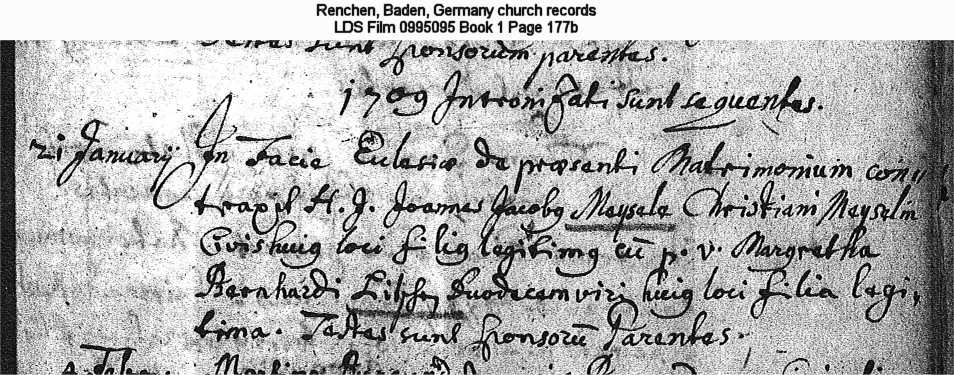 Renchen, Baden, Germany church records
LDS Film 0995095 Book 1 Page 177b
Testes sunt sponsorum parentes.
1709 Intronizati sunt sequentes.
21 Januarij In Facie Eclesiæ de præsenti Matrimonium con,,
traxit H. J. Joannes Jacobg Maysele Christiani Mayselin
Civis huig loci filig legitimg cū p. v. Margretha
Bernhardi duodecemviri huig loci filia legi,,
tima. Testes sunt sponsorū Parentes.